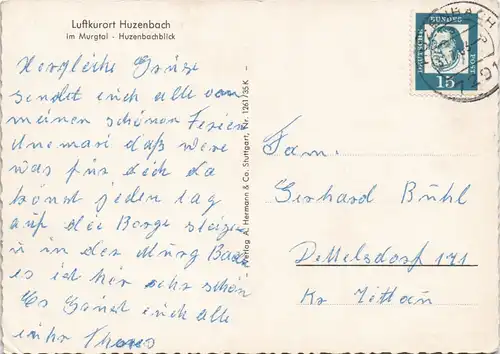 Luftkurort Huzenbach
im Murgtal - Huzenbachblick
Herzliche Grüse
sendet euch alle von
meinen schönen Ferien
Anemari daß were
was für dich da
könst jeden tag
auf die Berge steigen
u in der Murg Baden
es ist hir sehr schön
Es Grüst euch alle
euhr
Verlag A. Hermann & Co. Stuttgart, Nr. 1261/35 K
DEUTSCHE
BUNDES
POST
15
Fam.
Gerhard Bühl
Dettelsdorf 171
Kr Zittau